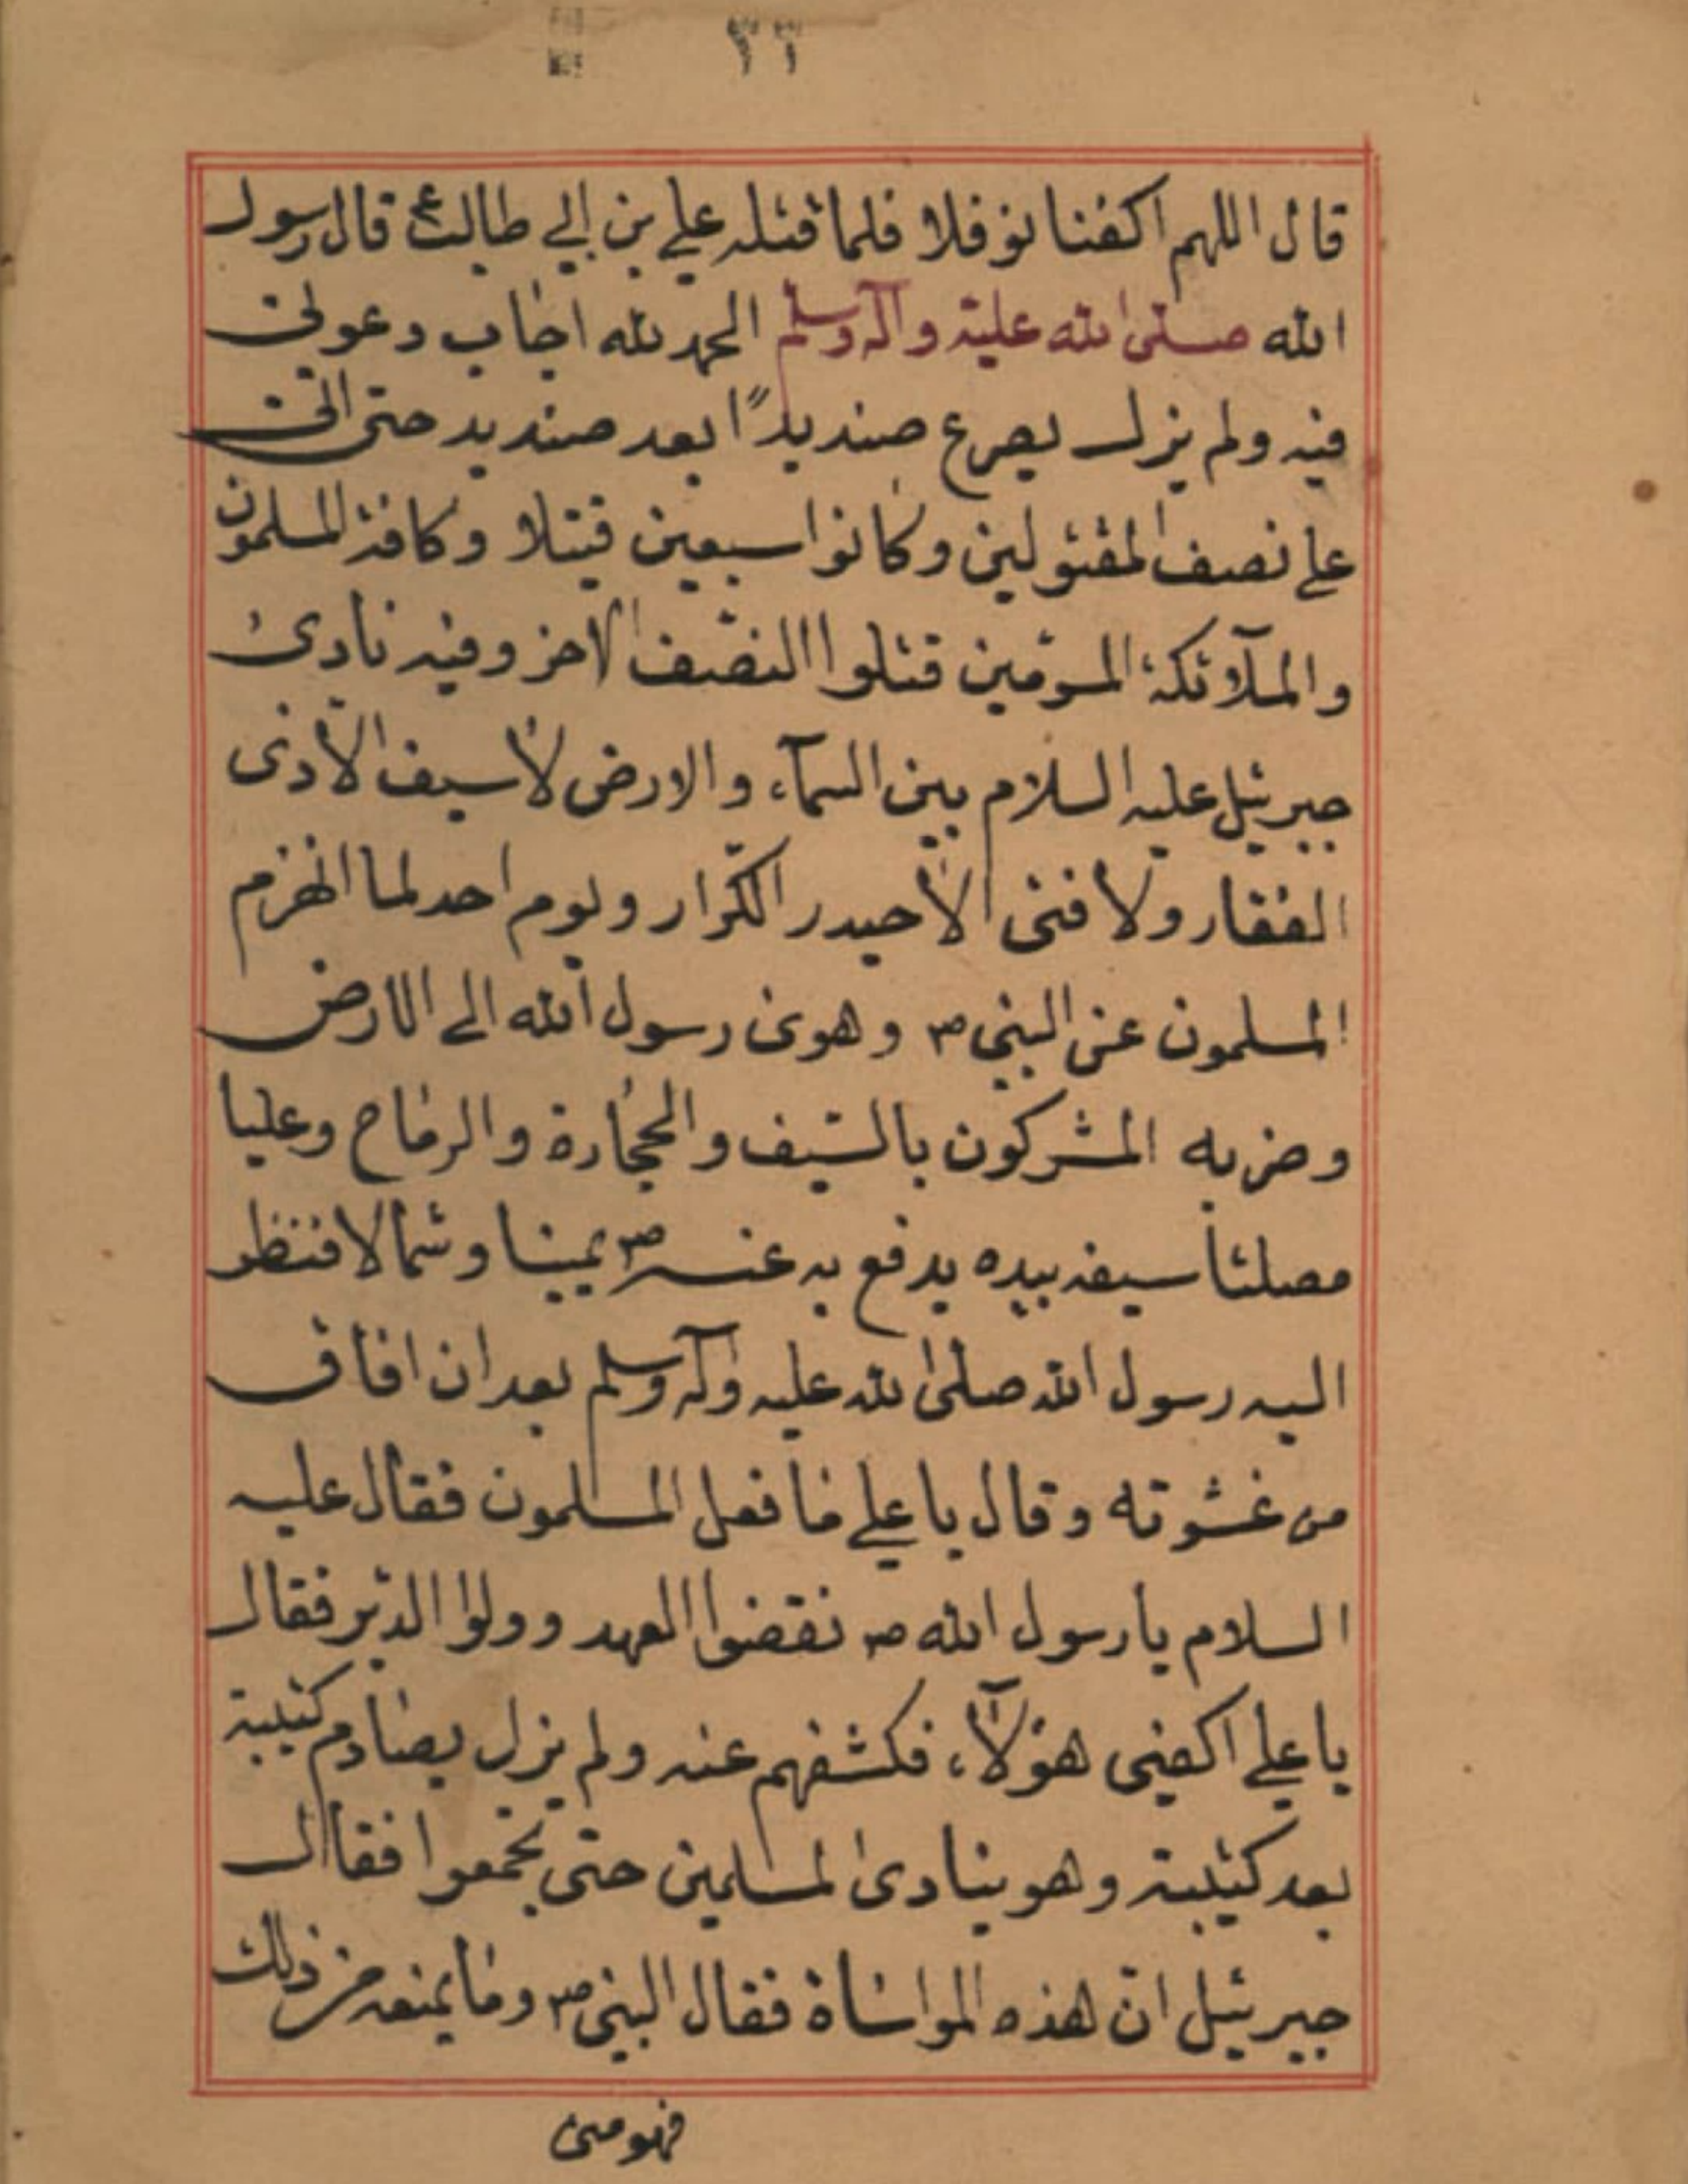 قال اللهم اكفنا نوفلا فلما قتله علي بن ابي طالب ع قال رسول
الله صلى الله عليه وآله وسلم الحمد لله اجاب دعوتى
فيه ولم يزل يصرع صنديدًا بعد صنديد حتى اتى
على نصف المقتولين وكانوا سبعين قتيلا وكافة المسلمون
والملآئكة المسوّمين قتلوا النصف الاخر وفيه نادى
جبرئيل عليه السلام بين السمآء والارض لا سيف الا ذى
الفقار ولا فتى الا حيدر الكرّار ويوم احد لما انهزم
المسلمون عن النبى ص وهوى رسول الله الى الارض
وضربه المشركون بالسّيف والحجارة والرماح وعليا
مصلتا سيفه بيده يدفع به عنه ص يمينا وشمالا فنظر
اليه رسول الله صلى الله عليه وآله وسلم بعد ان افاق
من غشوته وقال يا علي ما فعل المسلمون فقال عليه
السلام يا رسول الله ص نقضوا العهد وولوا الدبر فقال
يا علي اكفنى هؤلآء فكشفهم عنه ولم يزل يصادم كتيبة
بعد كتيبة وهو ينادى المسلمين حتى تجمعوا فقال
جبرئيل انّ هذه المواساة فقال النبى ص وما يمنعه من ذلك
فهو منى